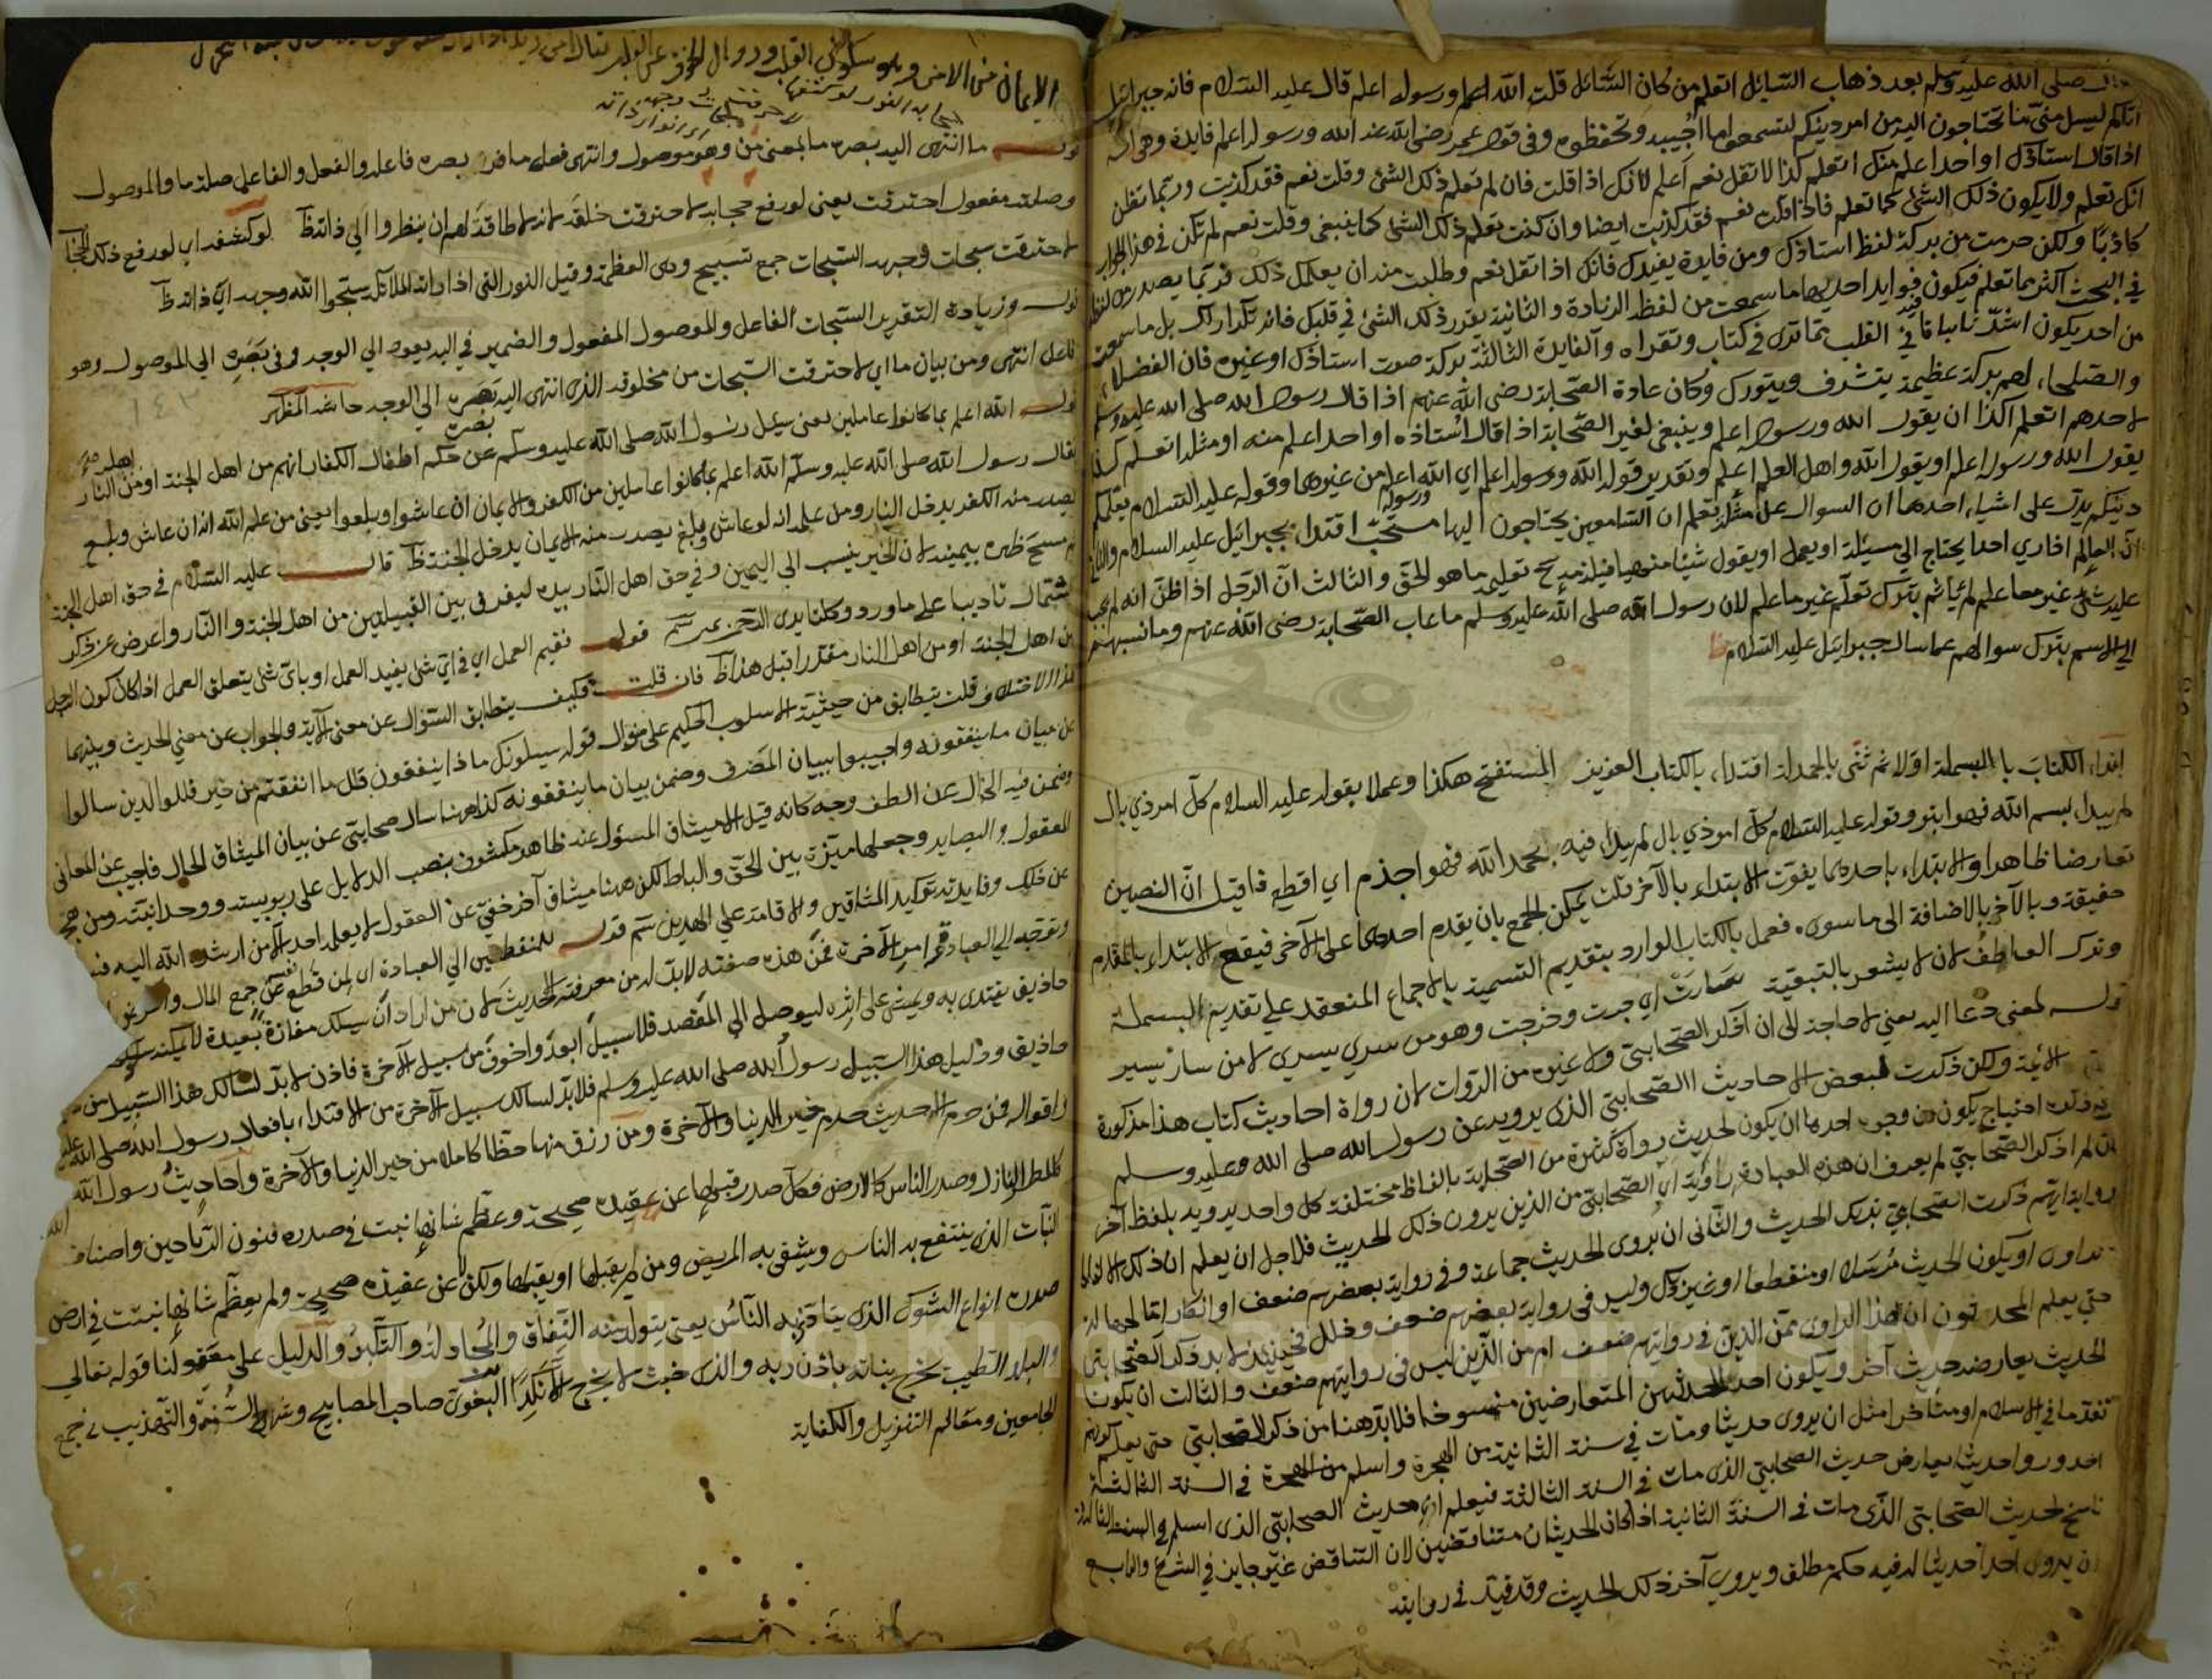 قال صلى الله عليه وسلم بعد ذهاب السائل اتعلم من كان السائل قلت الله اعلم ورسوله اعلم قال عليه السلام فانه جبرائيل
اتاكم ليسل مني ما تحتاجون اليه من امر دينكم لتسمعوا ما اجيبه وتحفظوه وفي قول عمر رضي الله عنه الله ورسوله اعلم فايدة وهي انه
اذا قال استاذك او احد اعلم منك اتعلم كذا لا تقل نعم اعلم لانك اذا قلت فان لم تعلم ذلك الشئ وقلت نعم فقد كذبت وربما تظن
انك تعلم ولا يكون ذلك الشئ كما تعلم فاذا قلت نعم فقد كذبت ايضا وان كنت تعلم ذلك الشئ كما ينبغي وقلت نعم لم تكن في هذا الجواب
كاذبا ولكن حرمت من بركة لفظ استاذك ومن فايدة يفيدك فانك اذا تقل نعم وطلبت منه ان يعلمك ذلك فربما يصدر من لفظه
في البحث اكثر مما تعلم فيكون فوايد احديها ما سمعت من لفظه الزيادة والثانية تقرر ذلك الشئ في قلبك فانه تكرار لك بل ما سمعت
من احد يكون اشد ثباتا في القلب مما ترى في كتاب وتقراه والفايدة الثالثة بركة صوت استاذك او غيره فان الفضلاء
والصلحاء لهم بركة عظيمة يتشرف ويتبرك وكان عادة الصحابة رضي الله عنهم اذا قال رسول الله صلى الله عليه وسلم
لاحدهم اتعلم كذا ان يقول الله ورسوله اعلم وينبغي لغير الصحابة اذا قال استاذه او احد اعلم منه او مثله اتعلم كذا
يقول الله ورسوله اعلم او يقول الله واهل العلم اعلم وتقدير قوله الله ورسوله اعلم اي الله اعلم من غيرهما وقوله عليه السلام يعلمكم
دينكم يدل على اشياء احدها ان السوال عن مثله لتعلم ان السامعين يحتاجون اليها مستحب اقتداء بجبرائيل عليه السلام والثاني
ان العالم اذا رأى احدا يحتاج الى مسئلة او يعمل او يقول شيئا منهيا فيلزمه تعليمه ما هو الحق والثالث ان الرجل اذا ظن انه لم يجب
عليه شئ غير ما علم لم ياثم بترك تعلم غير ما علم لان رسول الله صلى الله عليه وسلم ما عاب الصحابة رضي الله عنهم وما نسبهم
الى الاثم بترك سوالهم عما سال جبرائيل عليه السلام
ابتداء الكتاب بالبسملة اولا ثم ثنى بالحمدلة اقتداء بالكتاب العزيز المستفتح هكذا وعملا بقوله عليه السلام كل امر ذي بال
لم يبدا ببسم الله فهو ابتر وقوله عليه السلام كل امر ذي بال لم يبدا فيه بحمد الله فهو اجذم اي اقطع فاقبل ان النصين
تعارضا ظاهرا والابتداء باحدهما يفوت الابتداء بالآخر قلت يمكن الجمع بان يقدم احدهما على الآخر فيقع الابتداء بالمقدم
حقيقة وبالآخر بالاضافة الى ما سوى فعمل بالكتاب الوارد بتقديم التسمية بالاجماع المنعقد على تقديم البسملة
وترك العاطف لان لا يشعر بالتبعية سارت اي جرت وخرجت وهو من سرى يسري لا من سار يسير
قوله لمعنى دعا اليه يعني لا حاجة الى ان اذكر الصحابي ولا غيره من الرواة لان رواة احاديث كتاب هذا مذكورة
الائمة ولكن ذكرت لبعض الاحاديث الصحابي الذي يرويه عن رسول الله صلى الله عليه وسلم
احتياج يكون من وجوه احدها ان يكون لحديث رواة كثيرة من الصحابة بالفاظ مختلفة كل واحد يرويه بلفظ آخر
لم اذكر الصحابي لم يعرف ان هذه العبارة راوية اي الصحابي من الذين يروون ذلك الحديث فلاجل ان يعلم ان ذلك
ذكرت الصحابي بذلك الحديث والثاني ان يروى الحديث جماعة وفي رواية بعضهم ضعف او انكار
او يكون الحديث مرسلا او منقطعا او غير ذلك وليس في رواية بعضهم ضعف وخلل فحينئذ لا بد ذكر الصحابي
حتى يعلم المحدثون ان هذا الراوي من الذين في روايتهم ضعف ام من الذين ليس في روايتهم ضعف والثالث ان يكون
الحديث يعارضه حديث آخر ويكون احد الحديثين المتعارضين منسوخا فلا بد هنا من ذكر الصحابي حتى يعلم
تقدما في الاسلام او متاخرا مثل ان يروى حديثا ومات في سنة الثانية من الهجرة واسلم من الهجرة في السنة الثالثة
احد وروا حديثا يعارض حديث الصحابي الذي مات في السنة الثالثة فيعلم ان حديث الصحابي الذي اسلم في السنة الثالثة
ناسخ لحديث الصحابي الذي مات في السنة الثانية اذا كان الحديثان متناقضين لان التناقض غير جايز في الشرع والرابع
ان يروى احد حديثا له فيه حكم مطلق ويروى آخر ذلك الحديث وقد قيد في روايته
الايمان من الامن وهو سكون القلب وزوال الخوف
حجابه النور لو كشفها
لاحرقت سبحات وجهه
اي انوار ذاته
قوله ما انتهى اليه بصره ما بمعنى من وهو موصول وانتهى فعل ماض بصره فاعله والفعل والفاعل صلة ما والموصول
وصلته مفعول احترقت يعني لو رفع حجابه لاحترقت خلقه لانه لا طاقة لهم ان ينظروا الى ذاته لو كشفه اي لو رفع ذلك الحجاب
لاحترقت سبحات وجهه السبحات جمع تسبيح وهي العظمة وقيل النور التي اذا راته الملائكة سبحوا الله وجهه اي ذاته
قوله وزيادة التقدير السبحات الفاعل والموصول المفعول والضمير في اليه يعود الى الوجه وفي بصره الى الموصول وهو
فاعل انتهى ومن بيان ما اي لاحترقت السبحات من مخلوقه الذي انتهى اليه بصره الى الوجه حاشية المظهر
قوله الله اعلم بما كانوا عاملين يعني سئل رسول الله صلى الله عليه وسلم عن حكم اطفال الكفار انهم من اهل الجنة او من النار
فقال رسول الله صلى الله عليه وسلم الله اعلم بما كانوا عاملين من الكفر والايمان ان عاشوا وبلغوا يعني من علم الله انه ان عاش وبلغ
يصدر منه الكفر يدخل النار ومن علم انه لو عاش وبلغ يصدر منه الايمان يدخل الجنة قال عليه السلام في حق اهل الجنة
مسح ظهره بيمينه لان الخير ينسب الى اليمين وفي حق اهل النار بيده ليفرق بين القبيلين من اهل الجنة والنار واعرض عن ذكر
الشمال تاديبا على ما ورد وكلتا يدي الرحمن يمين قوله نفيم العمل اي في اي شئ يفيد العمل او باي شئ يتعلق العمل اذا كان كون الرجل
من اهل الجنة او من اهل النار مقدرا قبل هذا فان قلت فكيف يتطابق السؤال عن معنى الآية والجواب عن معنى الحديث وبينهما
هذا الاختلاف قلت يتطابق من حيثية الاسلوب الحكيم على منوال قوله يسئلونك ماذا ينفقون قل ما انفقتم من خير فللوالدين سالوا
عن بيان ما ينفقونه واجيبوا ببيان المصرف وضمن بيان ما ينفقونه كذا ههنا سال صحابي عن بيان الميثاق الحال فاجيب عن المعاني
وضمن فيه الحال عن الطف وجه كانه قيل الميثاق المسؤل عنه ظاهر مكشوف بنصب الدلايل على ربوبيته ووحدانيته ومن
العقول والبصاير وجعلها مميزة بين الحق والباطل لكن ههنا ميثاق آخر خفي عن العقول لا يعلمه احد الا من ارشده الله اليه
عن ذلك وفايدته توكيد الميثاقين والاقامة على العهدين قوله للمنقطعين الى العبادة اي لمن قطع نفسه عن جمع المال
وتوجه الى العبادة وامر الآخرة فمن هذه صفته لا بد له من معرفة الحديث لان من اراد ان يسلك مفازة بعيدة لا يمكنه
حاذيق يقتدى به ويمشي على اثره ليوصل الى المقصد فلا سبيل ابعد واخوف من سبيل الآخرة فاذن لا بد لسالك هذا السبيل من
حاذيق ودليل هذا السبيل رسول الله صلى الله عليه وسلم فلا بد لسالك سبيل الآخرة من الاقتداء بافعال رسول الله صلى الله عليه
واقواله فمن حرم الاحديث حرم خير الدنيا والآخرة ومن رزق منها حظا كاملا من خير الدنيا والآخرة واحاديث رسول الله
كالمطر النازل وصدر الناس كالارض فكل صدر قبلها عن عقيدة صحيحة وعظم شانها نبت في صدره فنون الرياحين واصناف
النبات الذي ينتفع به الناس ويشفى به المريض ومن لم يقبلها او يقبلها ولكن لا عن عقيدة صحيحة ولم يعظم شانها نبتت في ارض
صدره انواع الشوك الذي يتاذى به الناس يعني يتولد منه النفاق والمجادلة والتكبر والدليل على معقولنا قوله تعالى
والبلد الطيب يخرج نباته باذن ربه والذي خبث لا يخرج الا نكدا البغوي صاحب المصابيح وشرح السنة والتهذيب في جمع
الجامعين ومعالم التنزيل والكفاية